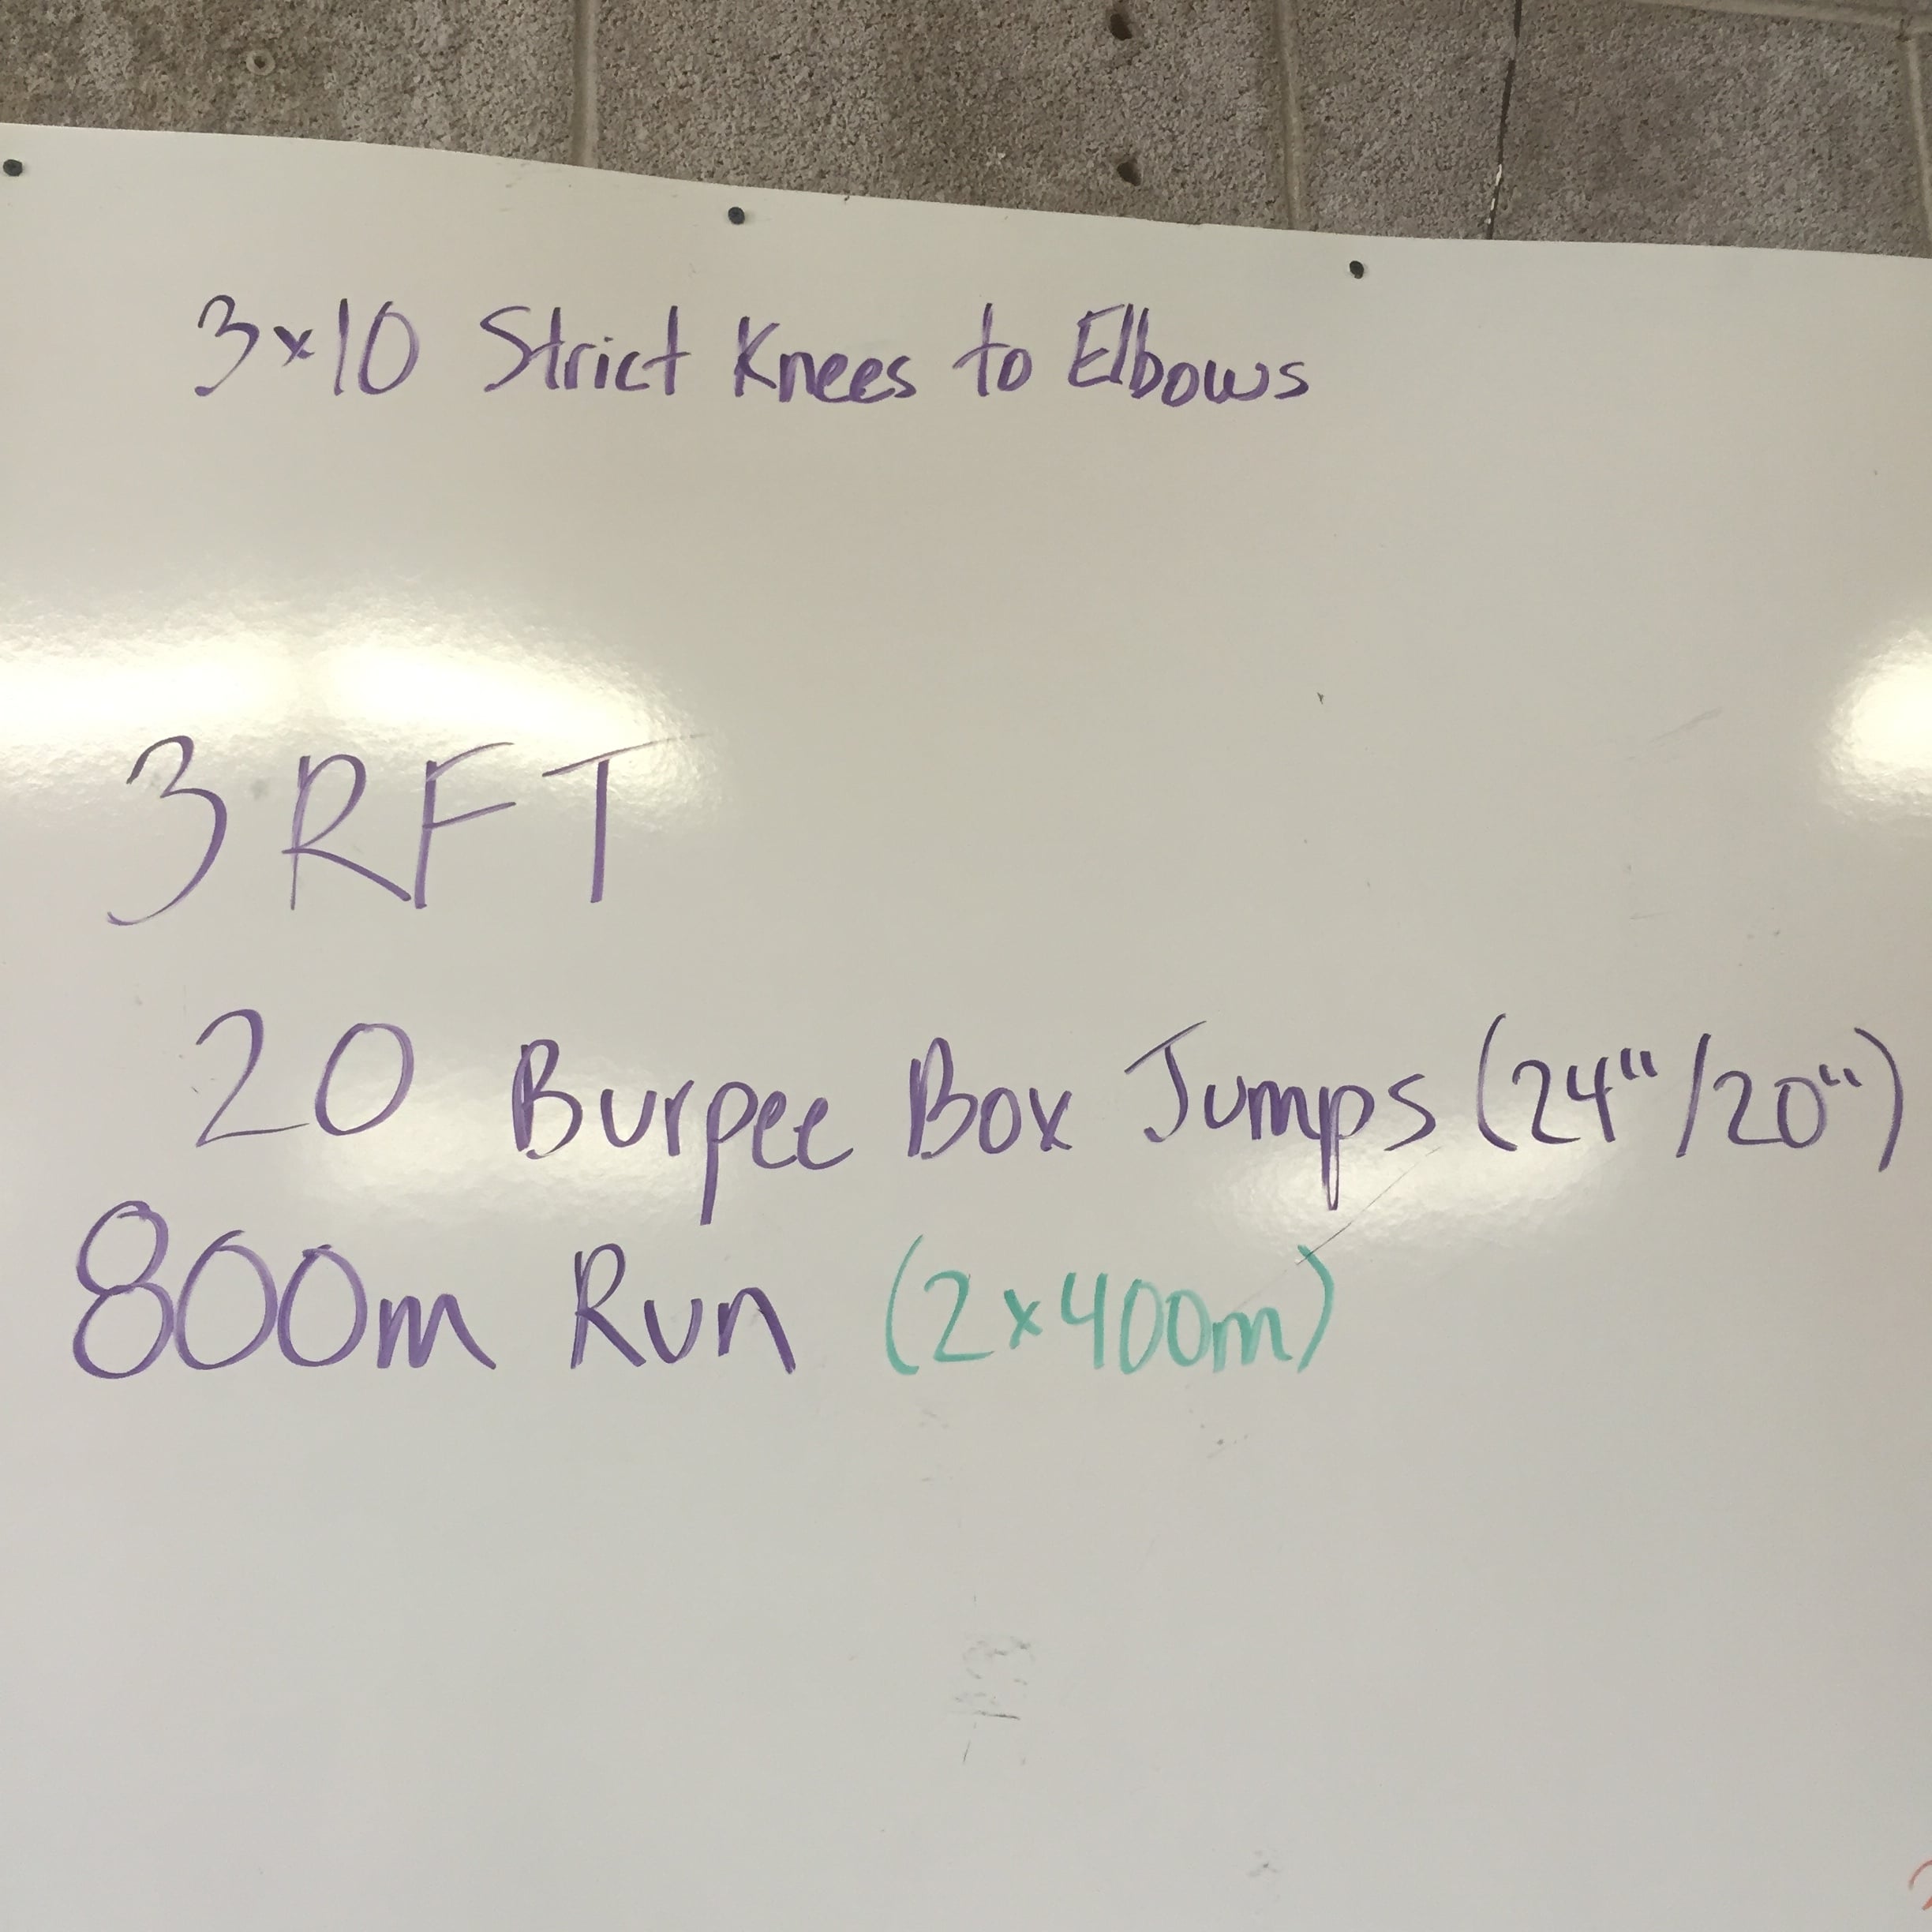 3x10 Strict Knees to Elbows
3 RFT
20 Burpee Box Jumps (24"/20")
800m Run (2x400m)